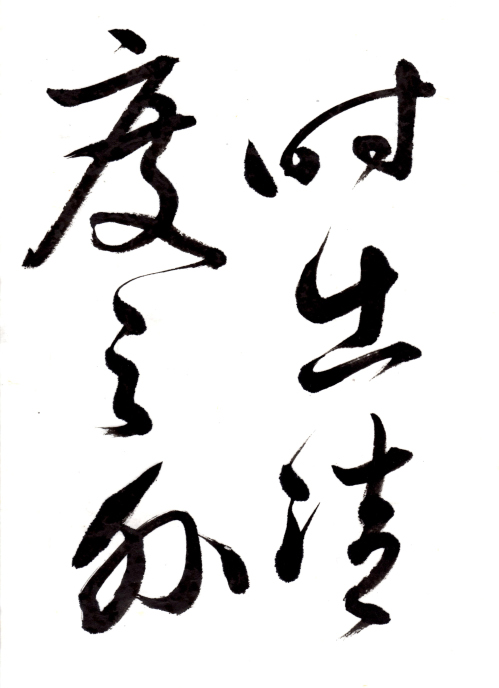 时出清
度之外